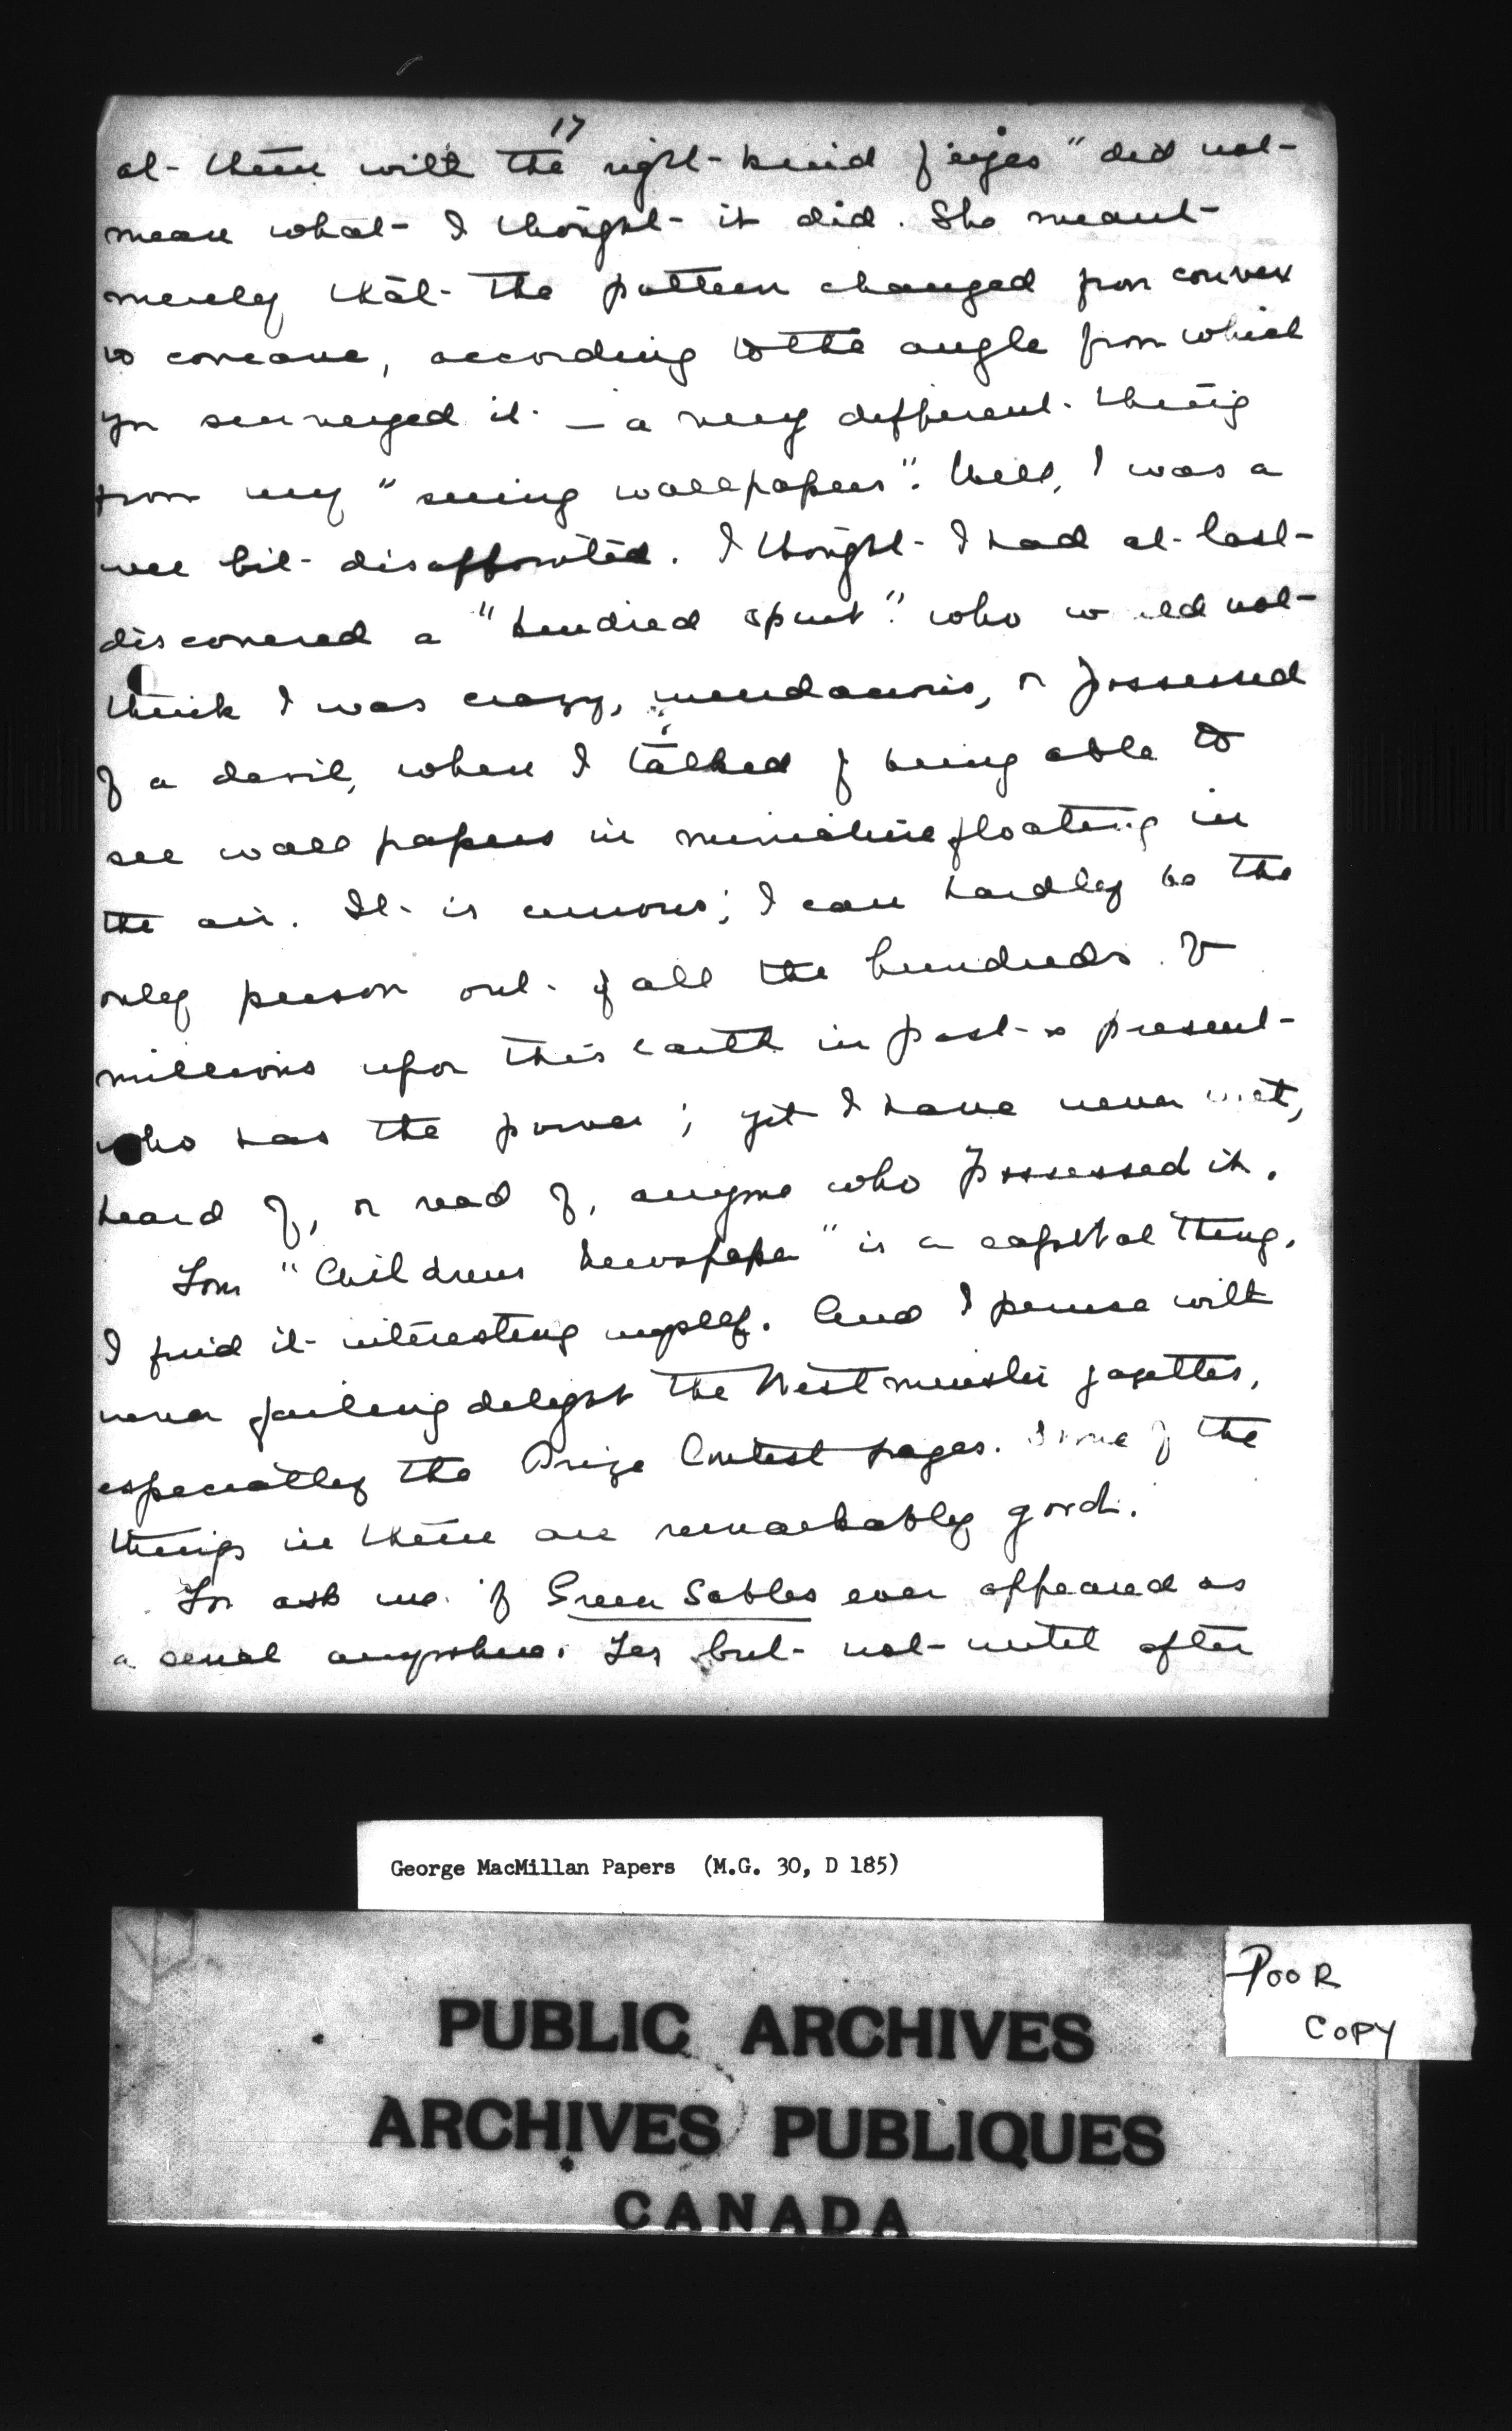 17
at them with the right kind of eyes" did not
mean what I thought it did. She meant
merely that the pattern changed from convex
to concave, according to the angle from which
you surveyed it – a very different thing
from my "seeing wallpapers". Well, I was a
wee bit disappointed. I thought I had at last
discovered a "kindred spirit" who would not
think I was crazy, mendacious, or possessed
of a devil, when I talked of being able to
see wall papers in miniature floating in
the air. It is curious; I can hardly be the
only person out of all the hundreds of
millions upon this earth in past & present
who has the power; yet I have never met,
heard of, or read of, anyone who possessed it.
Your "Childrens Newspaper" is a capital thing.
I find it interesting myself. And I peruse with
never failing delight the Westminster gazettes,
especially the Prize Contest pages. Some of the
things in them are remarkably good.
You ask me if Green Gables ever appeared as
a serial anywhere. Yes but not until after
George MacMillan Papers (M.G. 30, D 185)
POOR
COPY
PUBLIC ARCHIVES
ARCHIVES PUBLIQUES
CANADA